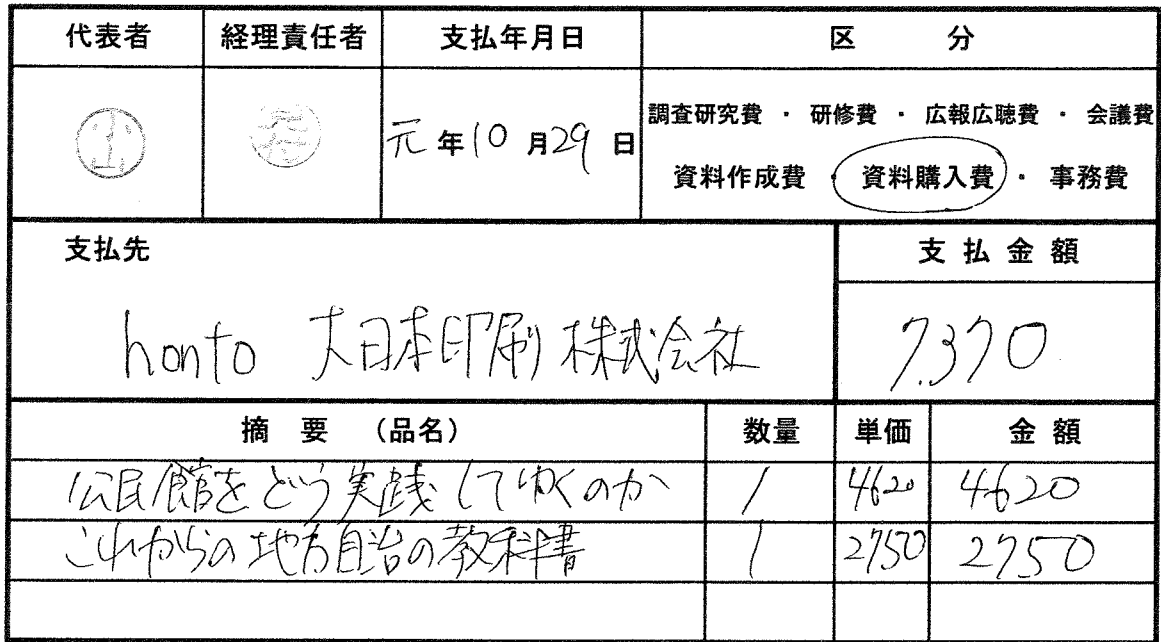 代表者 経理責任者 支払年月日 区 分
元年10月29日
調査研究費 ・ 研修費 ・ 広報広聴費 ・ 会議費
資料作成費 ・ 資料購入費 ・ 事務費
支払先 支払金額
honto 大日本印刷株式会社 7,370
摘要 (品名) 数量 単価 金額
公民館をどう実践してゆくのか 1 4620 4620
これからの地方自治の教科書 1 2750 2750